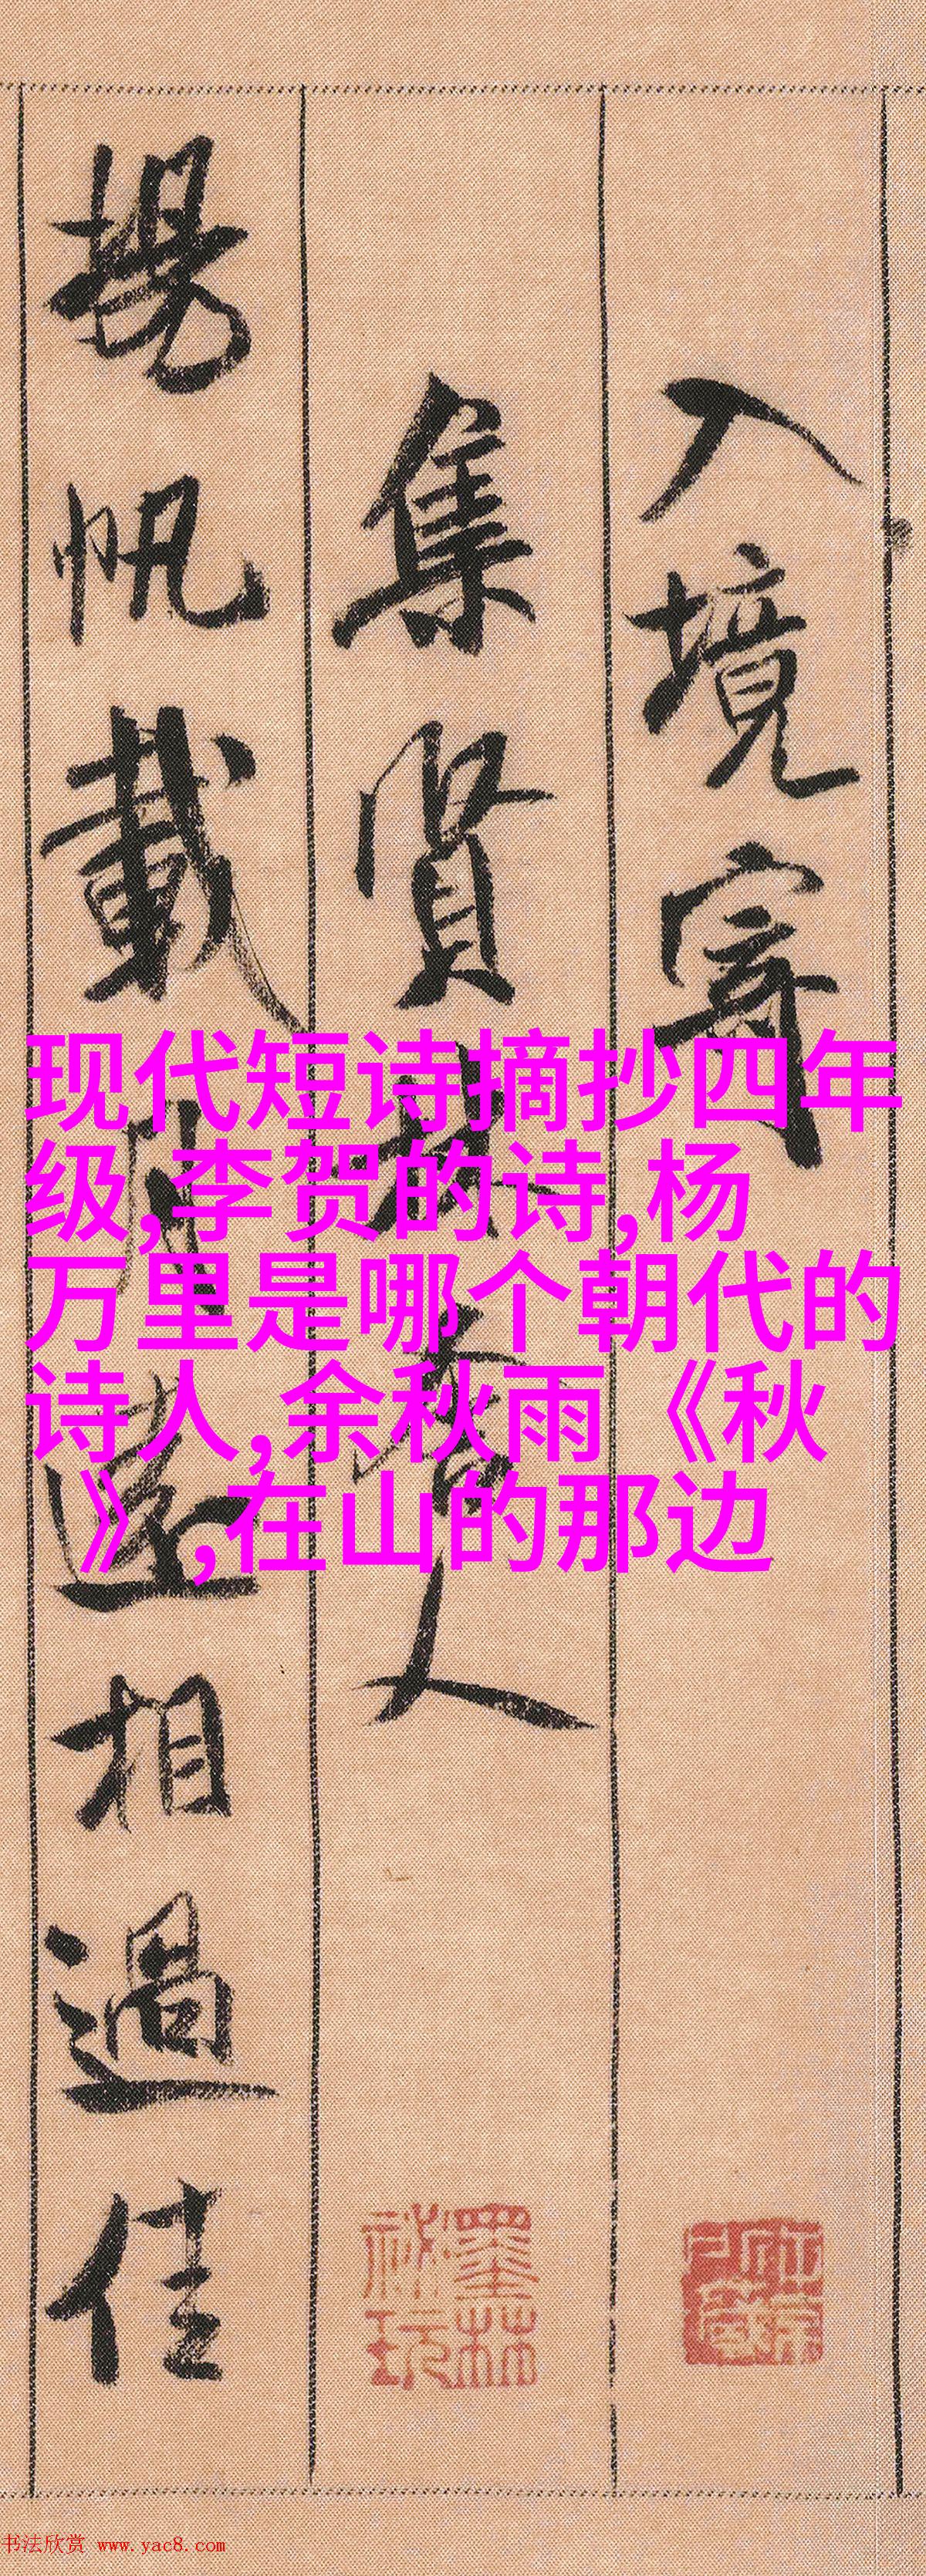 入境寄
集賢林舍人
揚帆載月遠相過佳
现代短诗摘抄四年
级,李贺的诗,杨
万里是哪个朝代的
诗人,余秋雨《秋
》,在山的那边
墨林
祕玩
书法欣赏 www.yac8.com